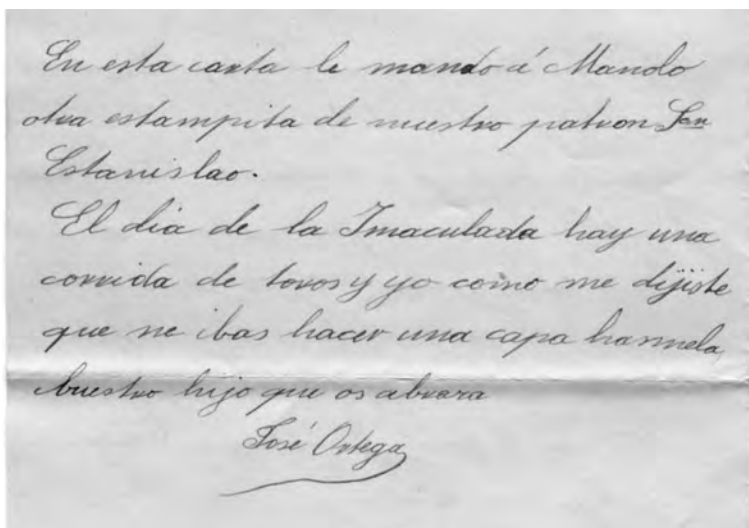 En esta carta le mando á Manolo
otra estampita de nuestro patron San
Estanislao.
El dia de la Imaculada hay una
corrida de toros y yo como me dijiste
que me ibas hacer una capa hasmela,
buestro hijo que os abraza
José Ortega